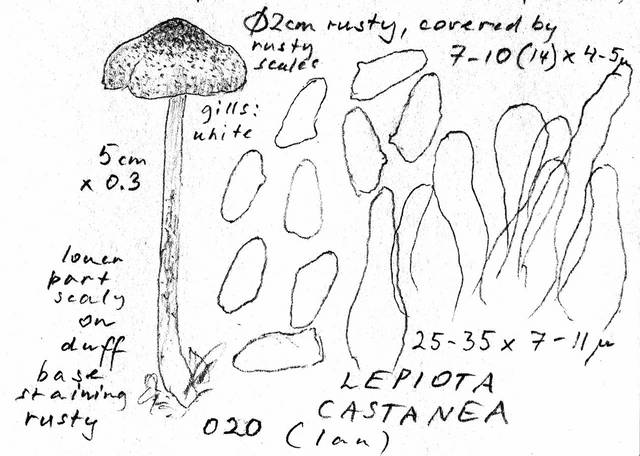 Ø2cm rusty, covered by
rusty
scales
7-10(14) x 4-5µ
gills:
white
5cm
x 0.3
lower
part
scaly
on
duff
base
staining
rusty
25-35 x 7-11µ
LEPIOTA
CASTANEA
020 (Ian)